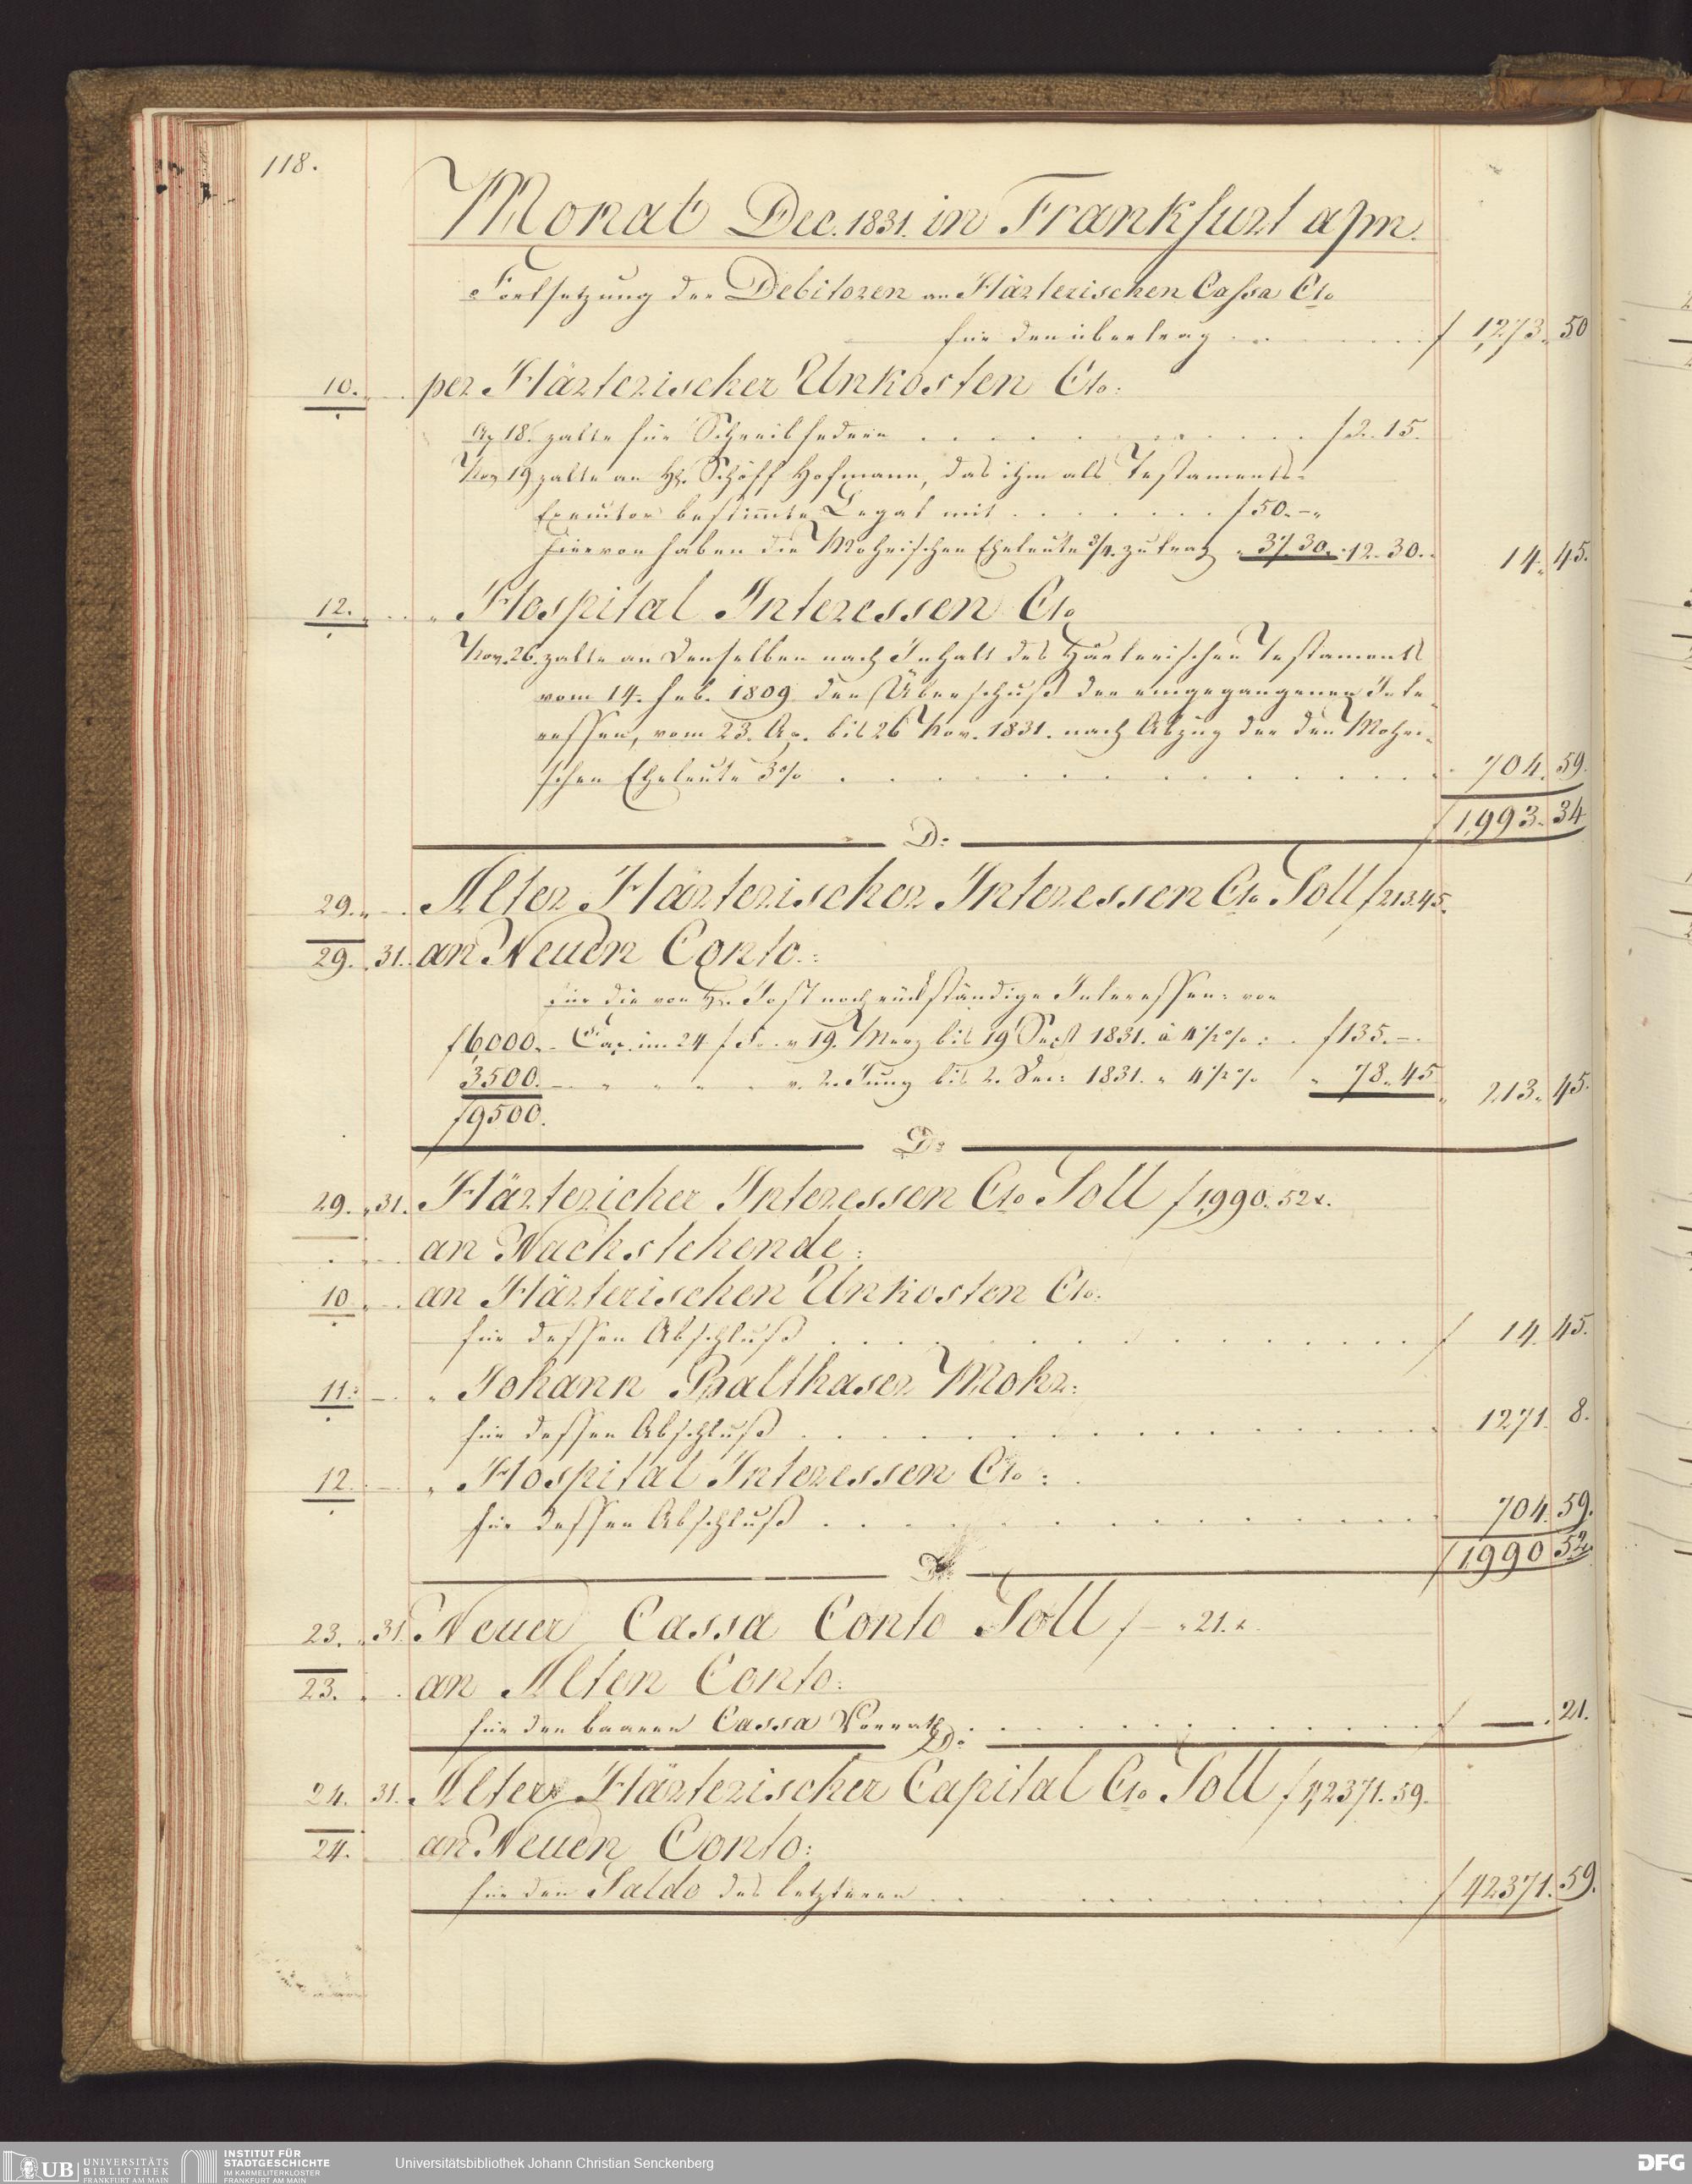 118.
Monat Dec. 1831. in Frankfurt a/m.
Fortsetzung der Debitoren an Härterischen Cassa Cto
für den übertrag . . . . . f 1,273. 50
10. per Härterischer Unkosten Cto:
Ap. 18. zalte für Schreibfedern . . . . . f 2. 15.
Nov 19 zalte an H. Schöff Hofmann, das ihm als Testaments-
Executor bestimte Legat mit . . . . . f 50. -„
hiervon haben die Mohrischen Eheleute 3/4. zu trag „ 37. 30. . 12. 30. . 14. 45.
12. „ Hospital Interessen Cto
Nov. 26. zalte an denselben nach Inhalt des Härterischen Testaments
vom 14. Feb. 1809 den Überschuß der eingegangenen Inte-
ressen, vom 23. Ap. bis 26 Nov. 1831. nach Abzug der den Mohri-
schen Eheleute 3% . . . . . 704. 59.
f 1,993. 34
D:
29. „ Alter Härterischer Interessen Cto Soll f 213. 45.
29. „ 31. an Neuen Conto:
für die von H. Jost noch rückständige Interessen: von
f 6,000. - Cap. im 24 f v. 19. Merz bis 19 Sept 1831. à 4 1/2 % : . f 135. -.
3500. - „ „ „ „ v. 2. Juny bis 2. Dec: 1831. „ 4 1/2 % „ 78. 45 „ 213. 45.
f 9500.
D:
29. „ 31. Härtericher Interessen Cto Soll f 1,990. 52 x.
an Nachstehende:
10. „ an Härterischen Unkosten Cto:
für dessen Abschluß . . . . . f 14. 45.
11: - „ Johann Balthaser Mohr:
für dessen Abschluß . . . . . 1271. 8.
12. - „ Hospital Interessen Cto:
für dessen Abschluß . . . . . 704. 59.
f 1,990 52.
D:
23. „ 31. Neuer Cassa Conto Soll f - „ 21. x.
23. „ an Alten Conto:
für den baaren Cassa Vorrath . . . . . f — . 21.
D:
24. 31. Alter Härterischer Capital Cto Soll f 42371. 59.
24. an Neuen Conto:
für den Saldo des letzteren . . . . . f 42371. 59.
UB
UNIVERSITÄTS
BIBLIOTHEK
FRANKFURT AM MAIN
INSTITUT FÜR
STADTGESCHICHTE
IM KARMELITERKLOSTER
FRANKFURT AM MAIN
Universitätsbibliothek Johann Christian Senckenberg
DFG